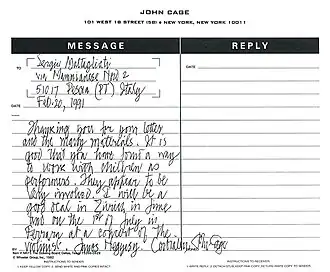 JOHN CAGE
101 WEST 18 STREET (5B) • NEW YORK, NEW YORK 10011
MESSAGE
REPLY
TO
Sergio
via
51017 Pescia (PT) Italy
DATE
Feb. 20, 1991
DATE
Thanking you for your letter
and the many materials. It is
good that you have found a way
to work with children as
performers. They appear to be
very involved. I will be a
good deal in Zurich in June
and on the 1st of July in
Ferrara at a concert of the
violinist János Négyesy. Cordially, John Cage
BY
INSTRUCTIONS TO SENDER:
INSTRUCTIONS TO RECEIVER: